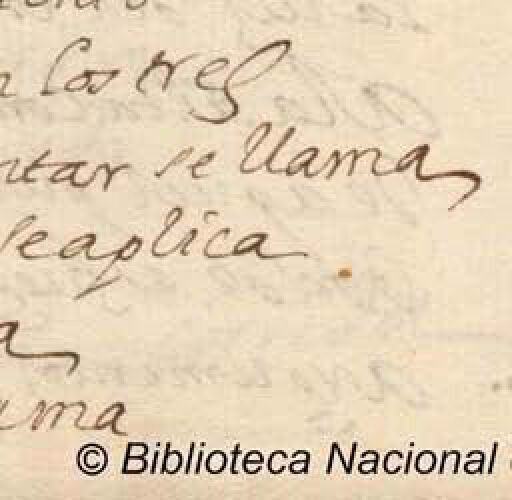 n los tres
ntar se llama
se aplica
a
ama
© Biblioteca Nacional